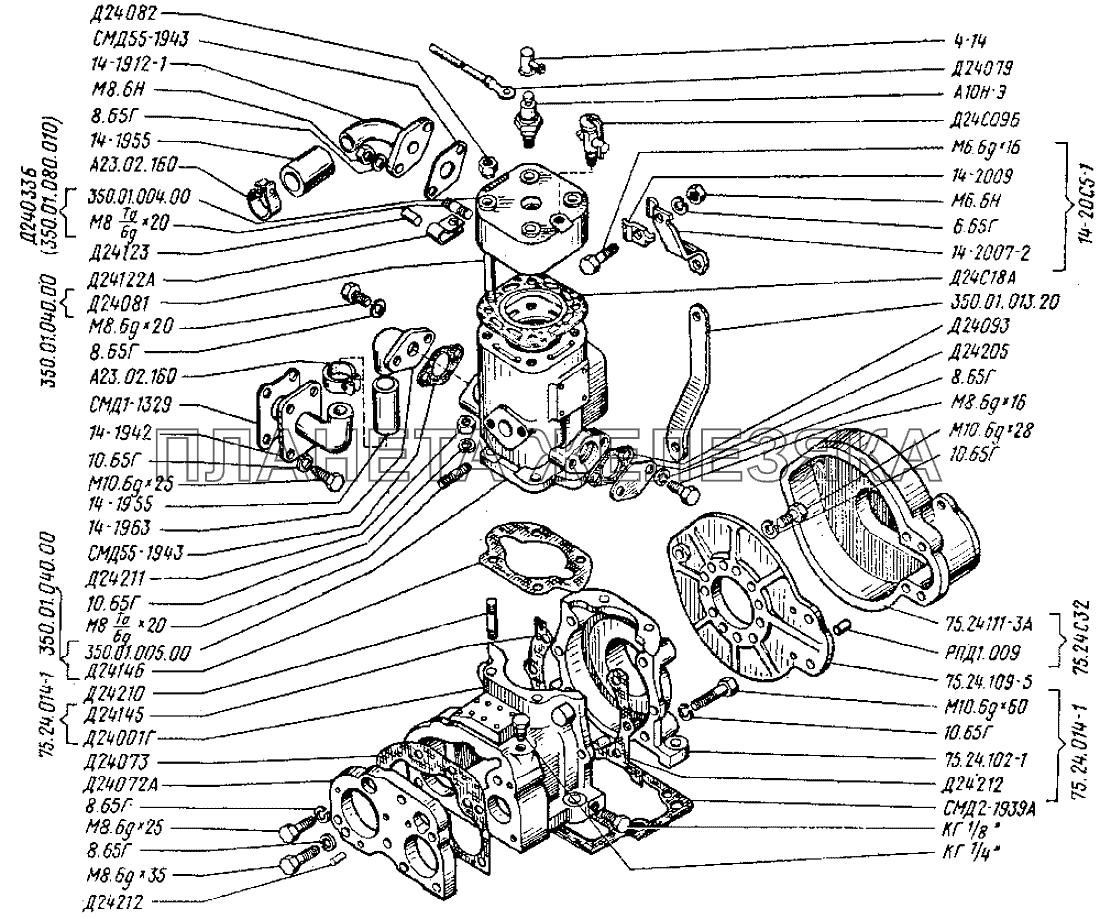 Д24082
СМД55-1943
14-1912-1
М8.6Н
8.65Г
14-1955
А23.02.160
350.01.004.00
М8 Та/6g ×20
Д24123
Д24122А
Д24081
М8.6g×20
8.65Г
А23.02.160
СМД1-1329
14-1942
10.65Г
М10.6g×25
14-1955
14-1963
СМД55-1943
Д24211
10.65Г
М8 Та/6g ×20
350.01.005.00
Д24146
Д24210
Д24145
Д24001Г
Д24073
Д24072А
8.65Г
М8.6g×25
8.65Г
М8.6g×35
Д24212
Д24033Б
(350.01.080.010)
350.01.040.00
350.01.040.00
75.24.014-1
4-14
Д24079
А10Н-Э
Д24С09Б
М6.6g×16
14-2009
М6.6Н
6.65Г
14-2007-2
Д24С18А
350.01.013.20
Д24093
Д24205
8.65Г
М8.6g×16
М10.6g×28
10.65Г
75.24.111-3А
РПД1.009
75.24.109-5
М10.6g×60
10.65Г
75.24.102-1
Д24212
СМД2-1939А
КГ 1/8"
КГ 1/4"
14-20С5-1
75.24С32
75.24.014-1
ПЛАНЕТА ЖЕЛЕЗЯКА